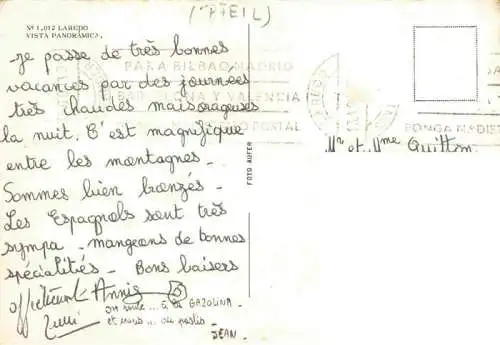 (PFEIL)
Nº 1,012 LAREDO
VISTA PANORÁMICA.
Je passe de très bonnes
vacances par des journées
très chaudes mais orageuses
la nuit. C'est magnifique
entre les montagnes -
Sommes bien bronzés -
Les Espagnols sont très
sympa - mangeons de bonnes
spécialités - Bons baisers
Annie
on roule... à la GAZOLINA -
et nous... au pastis -
JEAN -
FOTO AUFER
PARA BILBAO MADRID
Y VALENCIA
POSTAL
PONGA MADRI
Mr et Mme Guitton